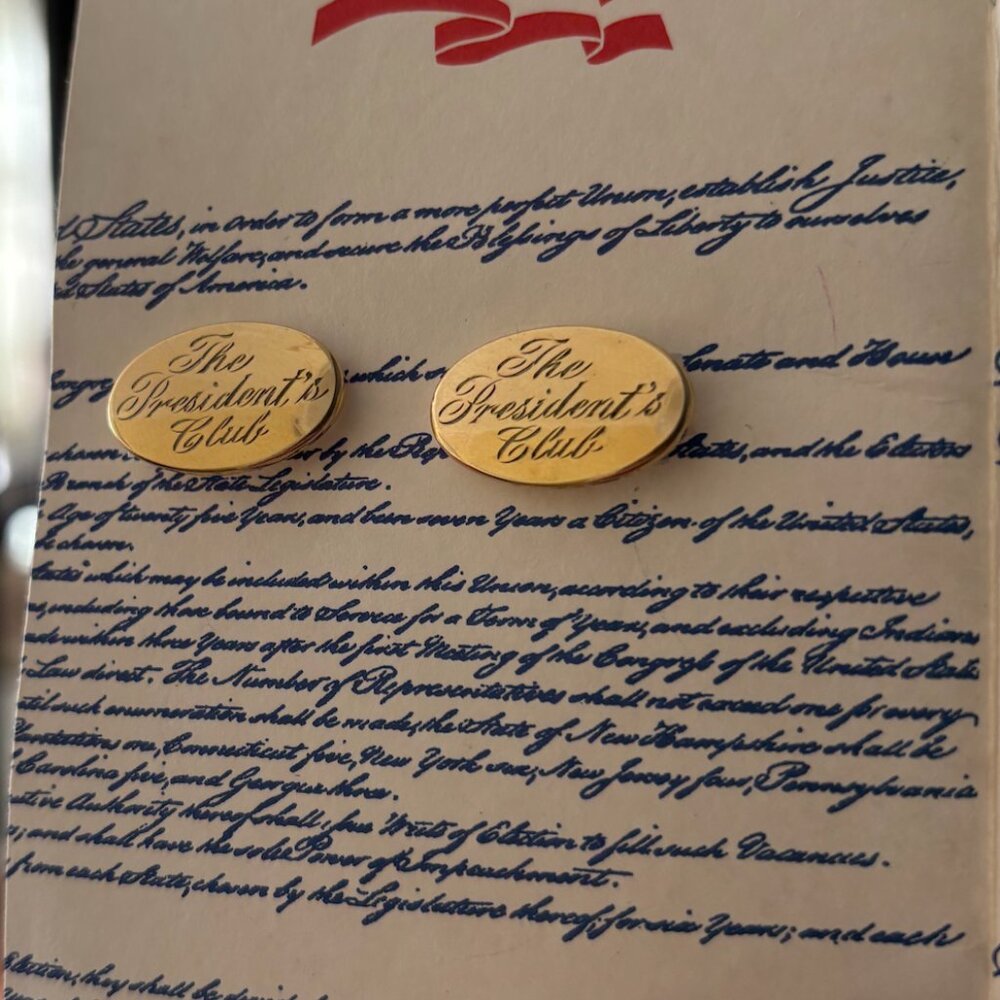 d States, in Order to form a more perfect Union, establish Justice,
the general Welfare, and secure the Blessings of Liberty to ourselves
ed States of America.
The
President's
Club
The
President's
Club
Congre which Senate and House
chosen by the States, and the Electors
Branch of the State Legislature.
Age of twenty five Years, and been seven Years a Citizen of the United States,
be chosen.
States which may be included within this Union, according to their respective
including those bound to Service for a Term of Years, and excluding Indians
made within three Years after the first Meeting of the Congress of the United States
Law direct. The Number of Representatives shall not exceed one for every
until such enumeration shall be made, the State of New Hampshire shall be
Plantations one, Connecticut five, New York six, New Jersey four, Pennsylvania
Carolina five, and Georgia three.
utive Authority thereof shall issue Writs of Election to fill such Vacancies.
; and shall have the sole Power of Impeachment.
from each State, chosen by the Legislature thereof, for six Years; and each
Election, they shall be